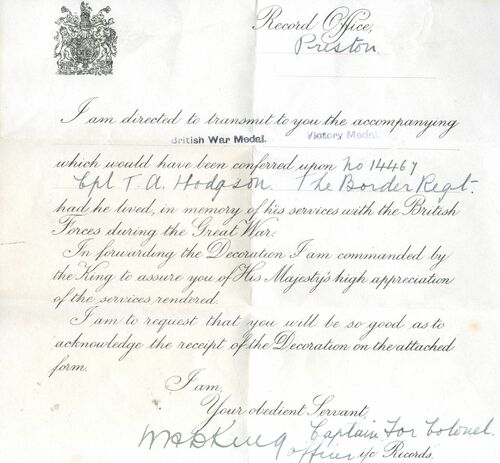 Record Office,
Preston.
I am directed to transmit to you the accompanying
British War Medal. Victory Medal.
which would have been conferred upon No 14467
Cpl T. A. Hodgson. The Border Regt.
had he lived, in memory of his services with the British
Forces during the Great War.
In forwarding the Decoration I am commanded by
the King to assure you of His Majesty's high appreciation
of the services rendered.
I am to request that you will be so good as to
acknowledge the receipt of the Decoration on the attached
form.
I am,
Your obedient Servant,
King Captain For Colonel.
Officer i/c Records.